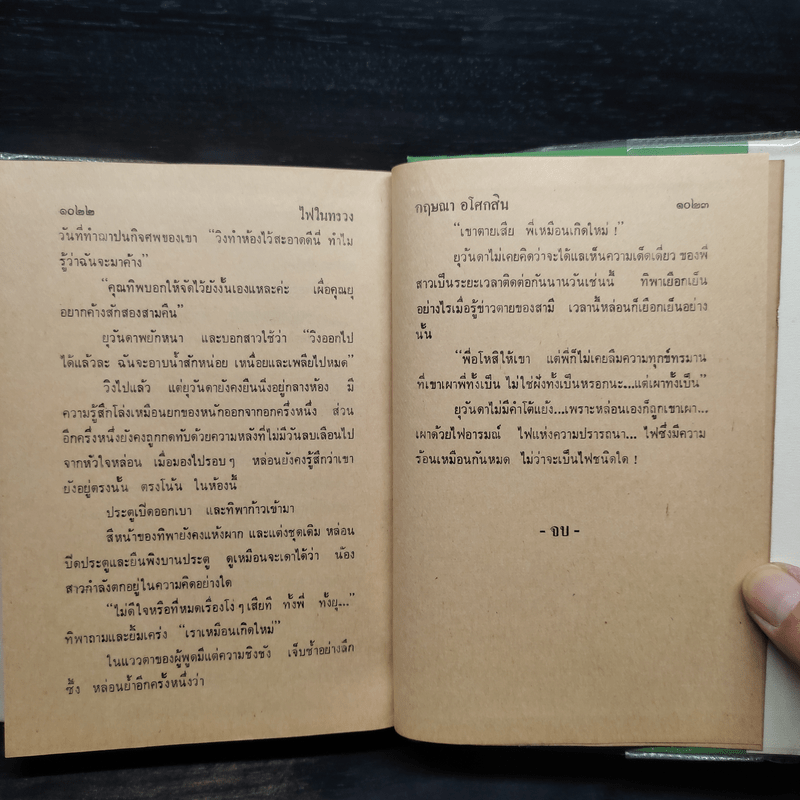 ๑๐๒๒ ไฟในทรวง
วันที่ทำฌาปนกิจศพของเขา "วิงทำห้องไว้สะอาดดีนี่ ทำไม
รู้ว่าฉันจะมาค้าง"
"คุณทิพบอกให้จัดไว้ยังงั้นเองแหละค่ะ เผื่อคุณยุ
อยากค้างสักสองสามคืน"
ยุวันดาพยักหน้า และบอกสาวใช้ว่า "วิงออกไป
ได้แล้วละ ฉันจะอาบน้ำสักหน่อย เหนื่อยและเพลียไปหมด"
วิงไปแล้ว แต่ยุวันดายังคงยืนนิ่งอยู่กลางห้อง มี
ความรู้สึกโล่งเหมือนยกของหนักออกจากอกครึ่งหนึ่ง ส่วน
อีกครึ่งหนึ่งยังคงถูกกดทับด้วยความหลังที่ไม่มีวันลบเลือนไป
จากหัวใจหล่อน เมื่อมองไปรอบๆ หล่อนยังคงรู้สึกว่าเขา
ยังอยู่ตรงนั้น ตรงโน้น ในห้องนี้
ประตูเปิดออกเบา และทิพาก้าวเข้ามา
สีหน้าของทิพายังคงแห้งผาก และแต่งชุดเดิม หล่อน
ปิดประตูและยืนพิงบานประตู ดูเหมือนจะเดาได้ว่า น้อง
สาวกำลังตกอยู่ในความคิดอย่างใด
"ไม่ดีใจหรือที่หมดเรื่องโง่ๆ เสียที ทั้งพี่ ทั้งยุ..."
ทิพาถามและยิ้มเคร่ง "เราเหมือนเกิดใหม่"
ในแววตาของผู้พูดมีแต่ความชิงชัง เจ็บช้ำอย่างลึก
ซึ้ง หล่อนย้ำอีกครั้งหนึ่งว่า
กฤษณา อโศกสิน ๑๐๒๓
"เขาตายเสีย พี่เหมือนเกิดใหม่ !"
ยุวันดาไม่เคยคิดว่าจะได้แลเห็นความเด็ดเดี่ยว ของพี่
สาวเป็นระยะเวลาติดต่อกันนานวันเช่นนี้ ทิพาเยือกเย็น
อย่างไรเมื่อรู้ข่าวตายของสามี เวลานี้หล่อนก็เยือกเย็นอย่าง
นั้น
"พี่อโหสิให้เขา แต่พี่ก็ไม่เคยลืมความทุกข์ทรมาน
ที่เขาเผาพี่ทั้งเป็น ไม่ใช่ฝังทั้งเป็นหรอกนะ...แต่เผาทั้งเป็น"
ยุวันดาไม่มีคำโต้แย้ง...เพราะหล่อนเองก็ถูกเขาเผา...
เผาด้วยไฟอารมณ์ ไฟแห่งความปรารถนา... ไฟซึ่งมีความ
ร้อนเหมือนกันหมด ไม่ว่าจะเป็นไฟชนิดใด !
- จบ -